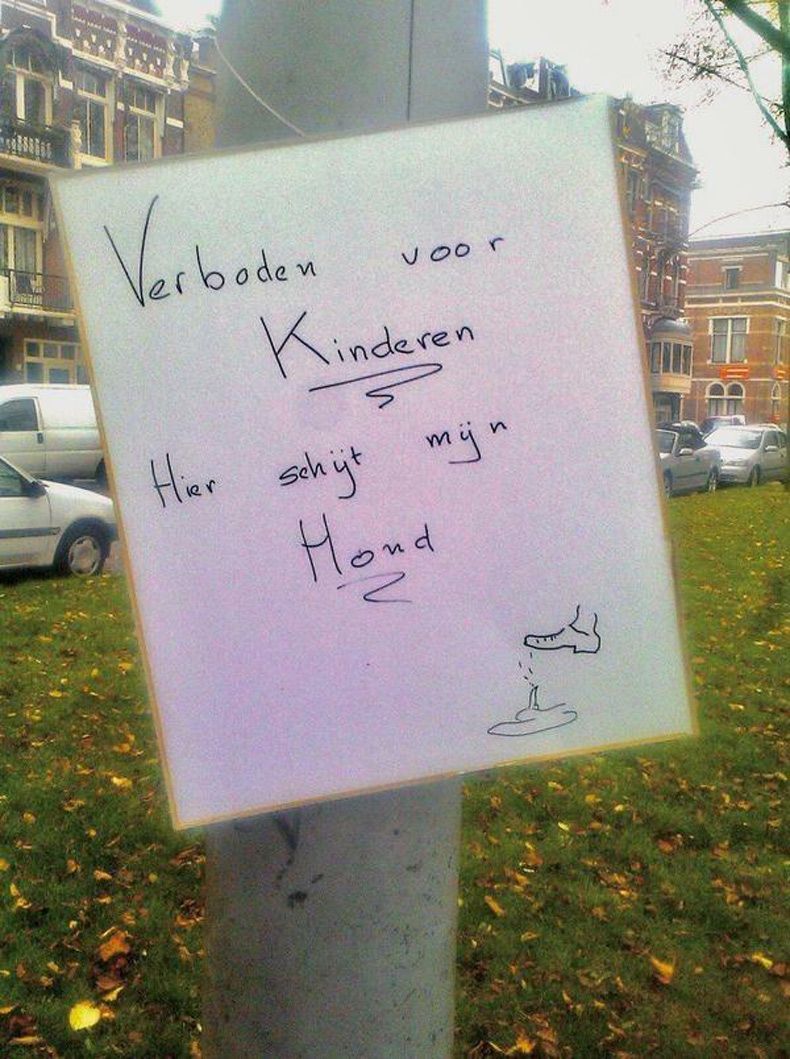 Verboden voor
Kinderen
Hier schijt mijn
Hond